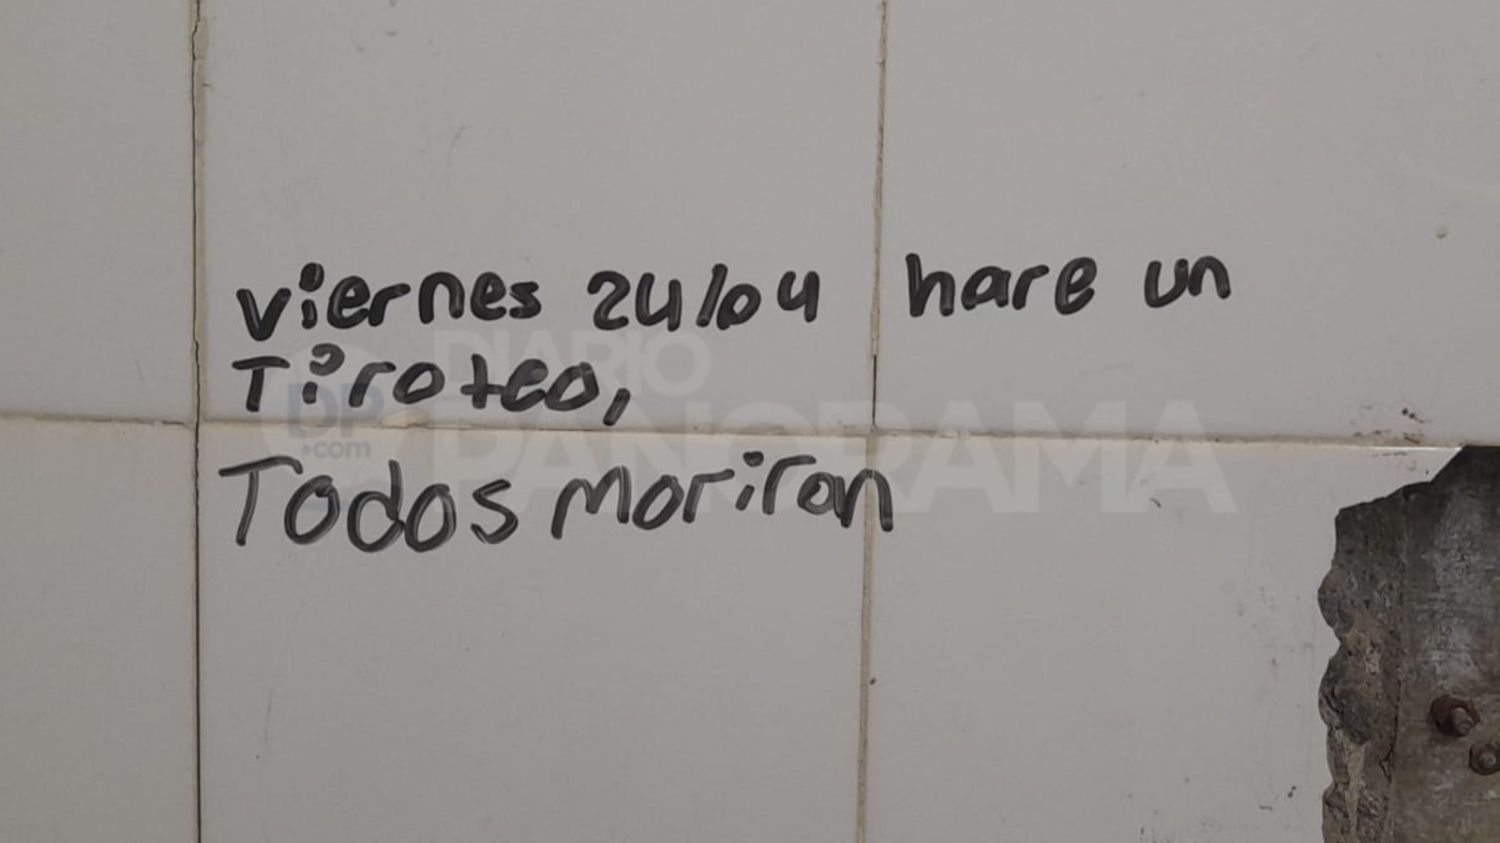 viernes 24/04 hare un
Tiroteo,
Todos moriran
DIARIO
PANORAMA
DP
.com